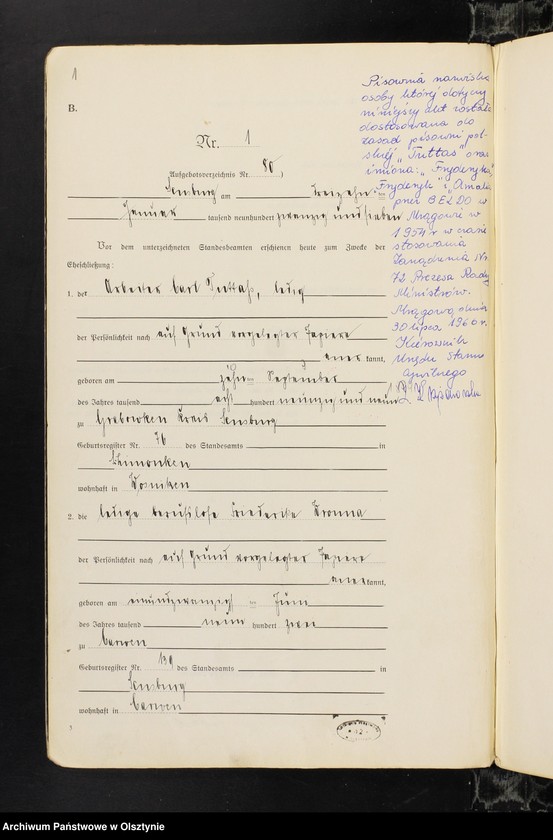 1
B.
Nr. 1
Aufgebotsverzeichnis Nr. 80)
Sensburg am dreizehnten
Januar tausend neunhundert zwanzig und sieben
Vor dem unterzeichneten Standesbeamten erschienen heute zum Zwecke der
Eheschließung:
1. der Arbeiter Carl Tuttas, ledig
der Persönlichkeit nach auf Grund vorgelegter Papiere
anerkannt,
geboren am zehnten September
des Jahres tausend acht hundert neunzig und neun
zu Grabowken Kreis Sensburg
Geburtsregister Nr. 76 des Standesamts in
wohnhaft in
2. die ledige berufslose Friederike Wronna
der Persönlichkeit nach auf Grund vorgelegter Papiere
anerkannt,
geboren am neunundzwanzigsten Juni
des Jahres tausend neun hundert zwei
zu Carwen
Geburtsregister Nr. 139 des Standesamts in
Sensburg
wohnhaft in Carwen
Pisownia nazwiska
osoby której dotyczy
niniejszy akt została
dostosowana do
zasad pisowni pol-
skiej „Tuttas" oraz
imiona: „Fryderyka",
„Fryderyk" i „Amalia"
przez
Mrągowie w
1954 r w czasie
stosowania
Zarządzenia Nr.
72 Prezesa Rady
Ministrów.
Mrągowo, dnia
30 lipca 1960 r.
Kierownik
Urzędu Stanu
Cywilnego
Archiwum Państwowe w Olsztynie